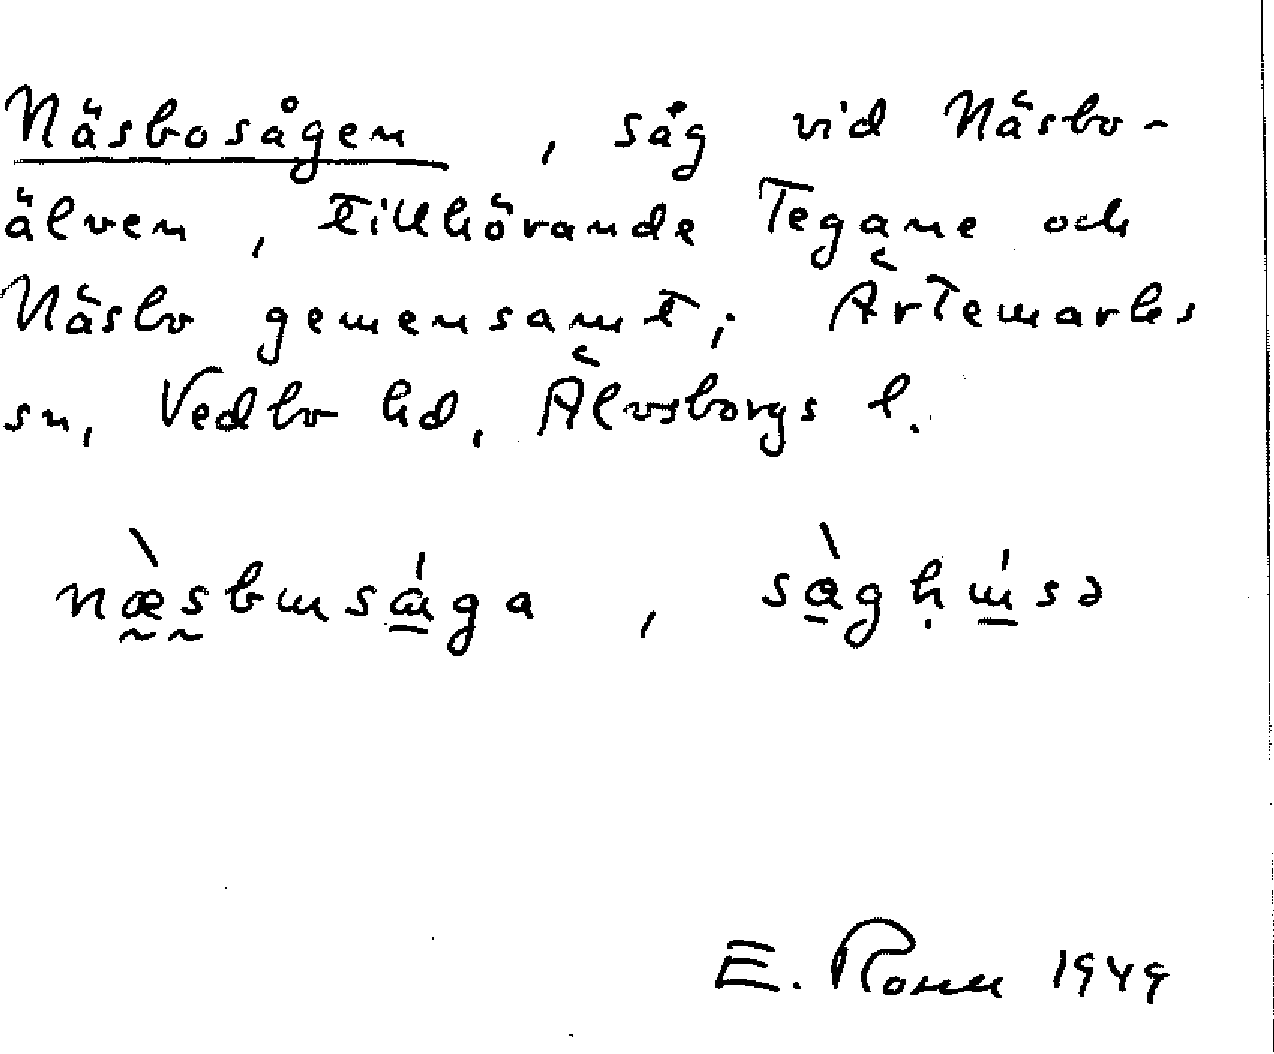 Näsbosågen, såg vid Näsbo-
älven, tillhörande Tegane och
Näsbo gemensamt; Ärtemarks
sn, Vedbo hd, Älvsborgs l.
E. 1949